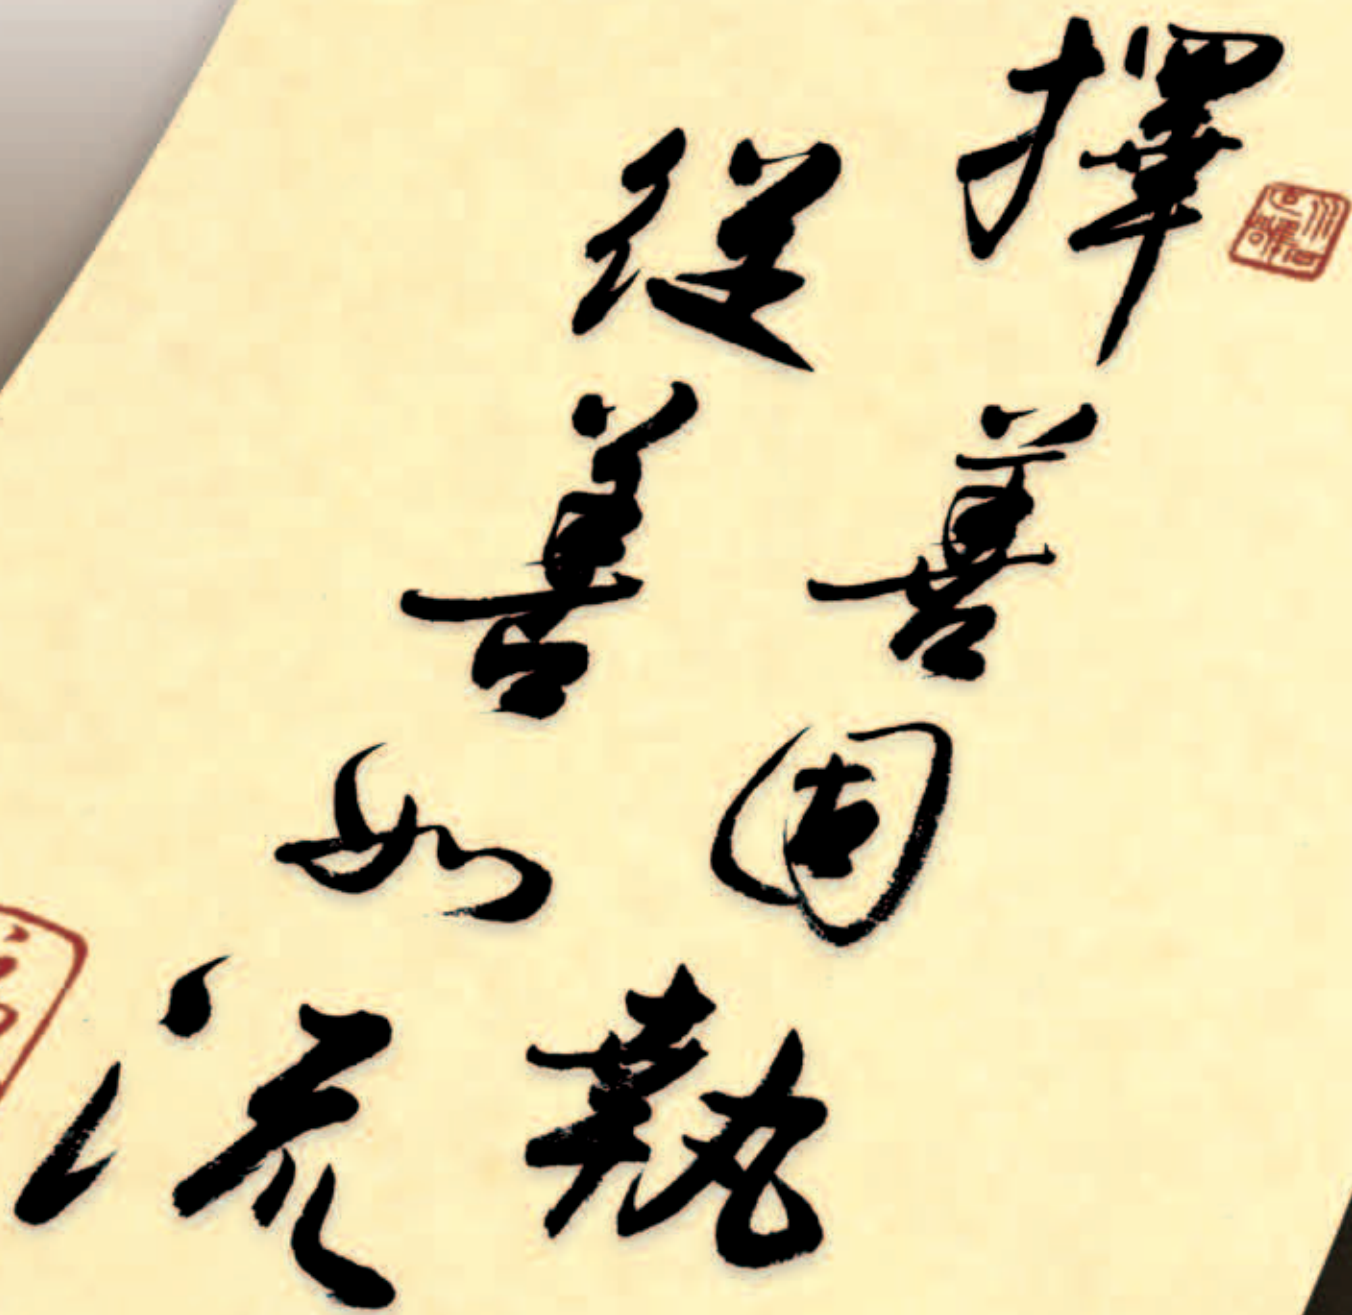 擇善固執
從善如流